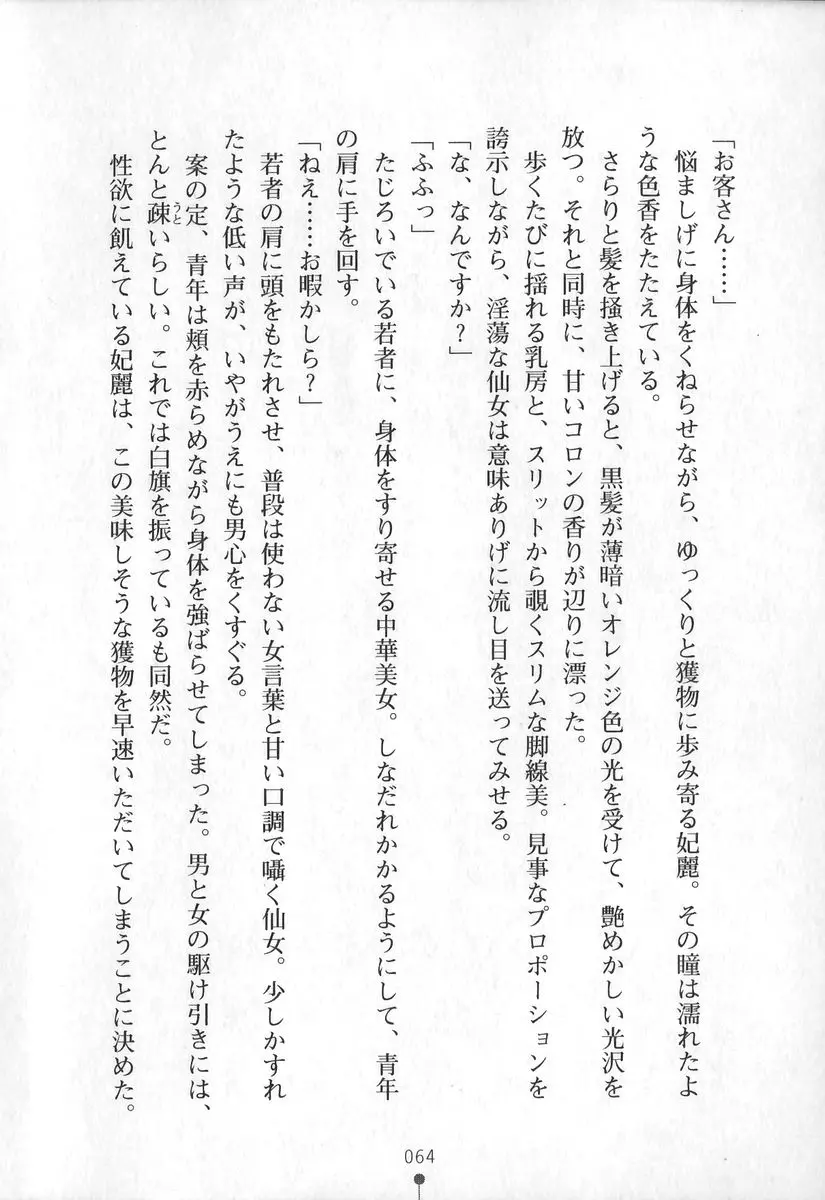 「お客さん……」
　悩ましげに身体をくねらせながら、ゆっくりと獲物に歩み寄る妃麗。その瞳は濡れたよ
うな色香をたたえている。
　さらりと髪を掻き上げると、黒髪が薄暗いオレンジ色の光を受けて、艶めかしい光沢を
放つ。それと同時に、甘いコロンの香りが辺りに漂った。
　歩くたびに揺れる乳房と、スリットから覗くスリムな脚線美。見事なプロポーションを
誇示しながら、淫蕩な仙女は意味ありげに流し目を送ってみせる。
「な、なんですか？」
「ふふっ」
　たじろいでいる若者に、身体をすり寄せる中華美女。しなだれかかるようにして、青年
の肩に手を回す。
「ねえ……お暇かしら？」
　若者の肩に頭をもたれさせ、普段は使わない女言葉と甘い口調で囁く仙女。少しかすれ
たような低い声が、いやがうえにも男心をくすぐる。
　案の定、青年は頬を赤らめながら身体を強ばらせてしまった。男と女の駆け引きには、
とんと疎いらしい。これでは白旗を振っているも同然だ。
うと
　性欲に飢えている妃麗は、この美味しそうな獲物を早速いただいてしまうことに決めた。
064